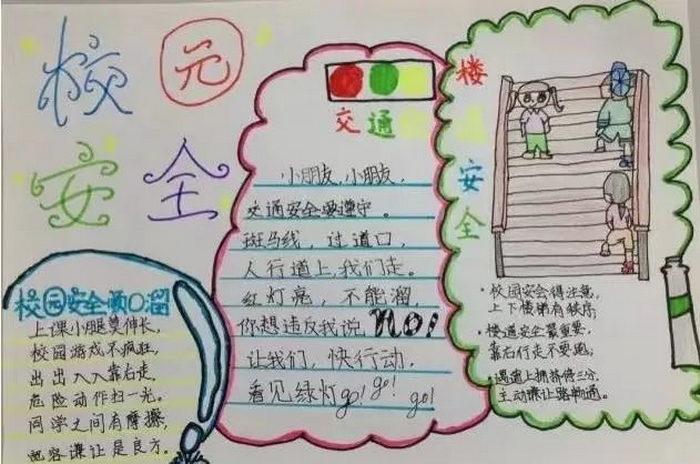 校园
安全
校园安全顺口溜
上课小腿莫伸长,
校园游戏不疯狂,
出出入入靠右走,
危险动作扫一光。
同学之间有摩擦,
宽容谦让是良方。
交通
小朋友,小朋友,
交通安全要遵守。
斑马线,过道口,
人行道上,我们走。
红灯亮,不能溜,
你想违反我说NO!
让我们,快行动,
看见绿灯go! go! go!
楼道安全
·校园安会得注意,
上下楼梯有秩序;
·楼道安全最重要,
靠右行走不要跑;
·遇道上拥挤待三分,
主动谦让路畅通。